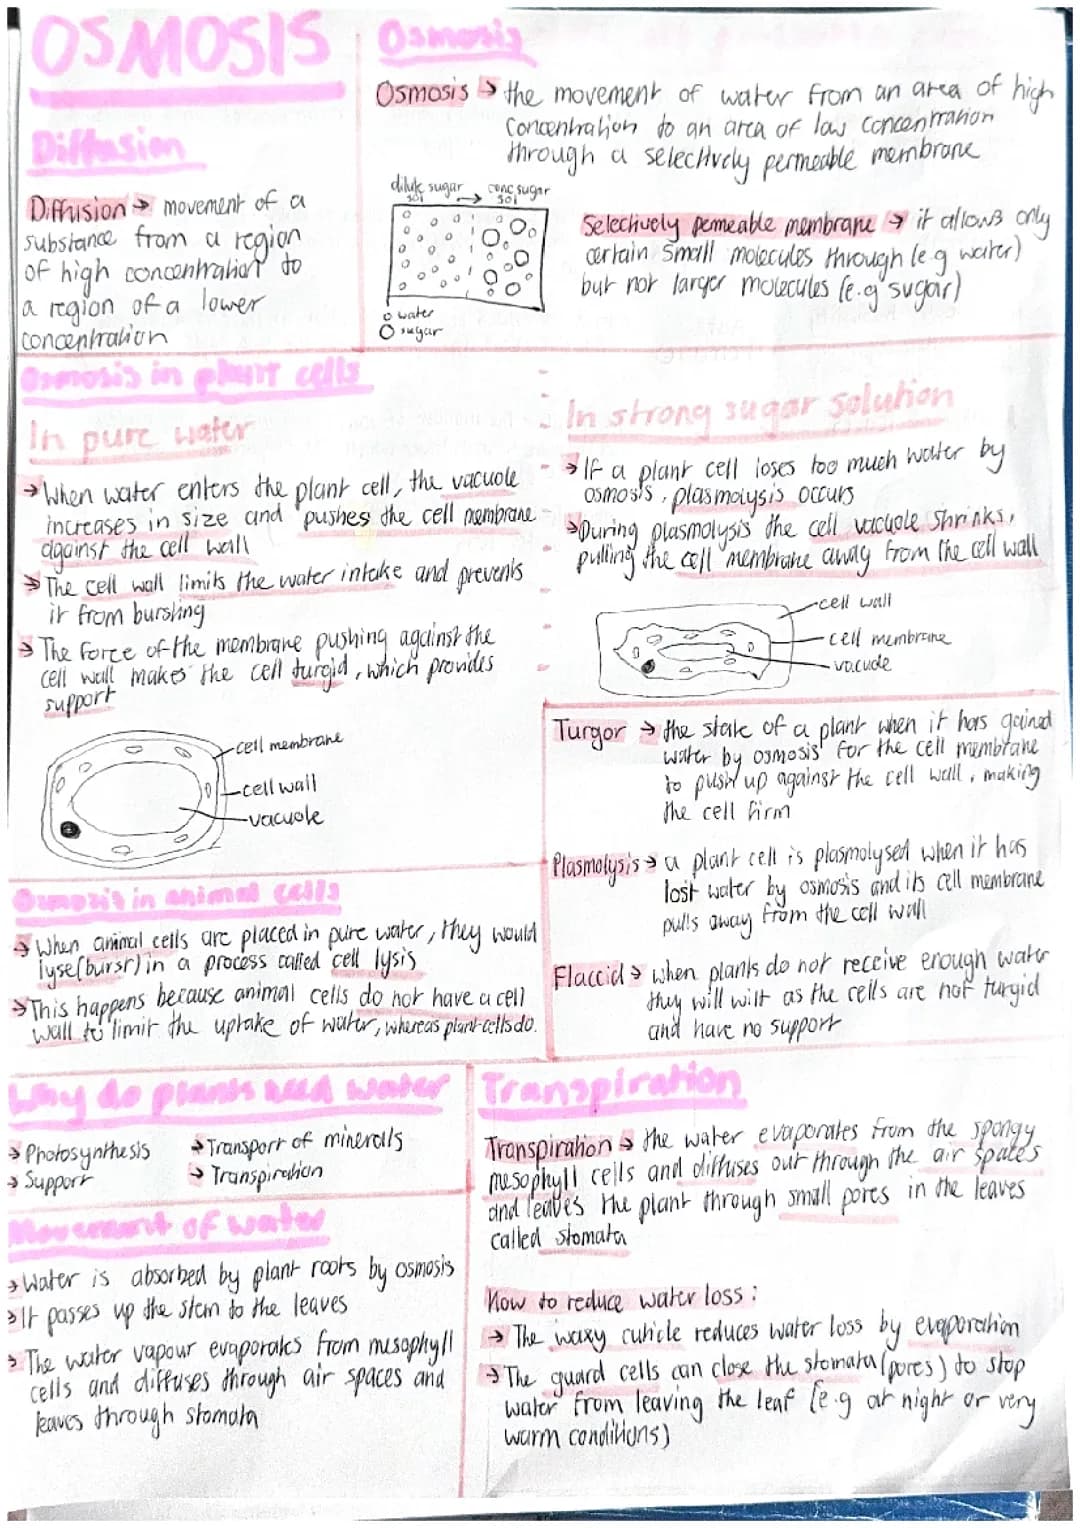 OSMOSIS
Diffusion
Diffusion → movement of a
substance from a region
of high concentration to
a region of a lower
concentration
Osmosis
Osmosis → the movement of water from an area of high
concentration to an area of low concentration
through a selectively permeable membrane
dilute sugar → conc sugar
sol sol
o water
O sugar
Selectively permeable membrane → it allows only
certain small molecules through (e.g water)
but not larger molecules (e.g sugar)
Osmosis in plant cells
In pure water
→ When water enters the plant cell, the vacuole
increases in size and pushes the cell membrane
against the cell wall
→ The cell wall limits the water intake and prevents
it from bursting
→ The force of the membrane pushing against the
cell wall makes the cell turgid, which provides
support
cell membrane
cell wall
vacuole
In strong sugar solution
→ If a plant cell loses too much water by
osmosis, plasmolysis occurs
→ During plasmolysis the cell vacuole shrinks,
pulling the cell membrane away from the cell wall
cell wall
cell membrane
vacuole
Turgor → the state of a plant when it has gained
water by osmosis for the cell membrane
to push up against the cell wall, making
the cell firm
Plasmolysis → a plant cell is plasmolysed when it has
lost water by osmosis and its cell membrane
pulls away from the cell wall
Flaccid → when plants do not receive enough water
they will wilt as the cells are not turgid
and have no support
Osmosis in animal cells
→ When animal cells are placed in pure water, they would
lyse (burst) in a process called cell lysis
→ This happens because animal cells do not have a cell
wall to limit the uptake of water, whereas plant cells do.
Why do plants need water
→ Photosynthesis → Transport of minerals
→ Support → Transpiration
Movement of water
→ Water is absorbed by plant roots by osmosis
→ It passes up the stem to the leaves
→ The water vapour evaporates from mesophyll
cells and diffuses through air spaces and
leaves through stomata
Transpiration
Transpiration → the water evaporates from the spongy
mesophyll cells and diffuses out through the air spaces
and leaves the plant through small pores in the leaves
called stomata
How to reduce water loss:
→ The waxy cuticle reduces water loss by evaporation
→ The guard cells can close the stomata (pores) to stop
water from leaving the leaf (e.g at night or very
warm conditions)